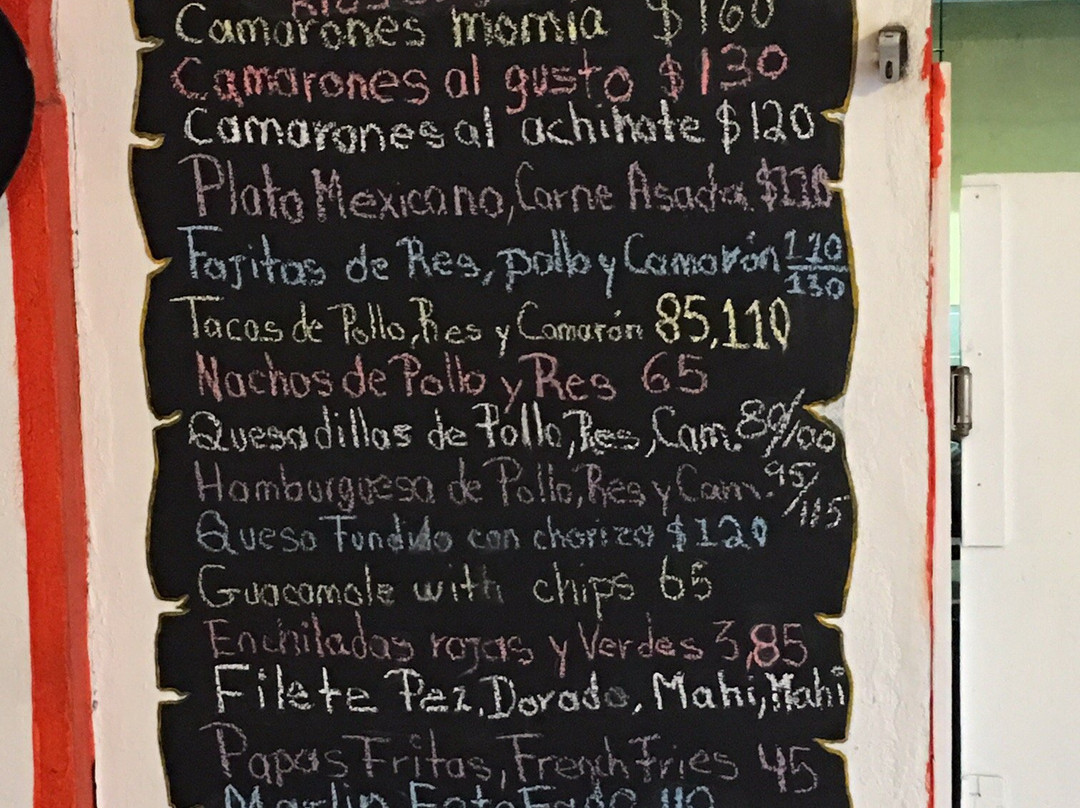 Camarones momia $160
Camarones al gusto $130
Camarones al achihote $120
Plato Mexicano, Carne Asada $110
Fajitas de Res, pollo y Camarón 110/130
Tacos de Pollo, Res y Camarón 85,110
Nachos de Pollo y Res 65
Quesadillas de Pollo, Res, Cam. 80/100
Hamburguesa de Pollo, Res y Cam. 95/115
Queso Fundido con chorizo $120
Guacamole with chips 65
Enchiladas rojas y Verdes 3,85
Filete Pez, Dorado, Mahi, Mahi
Papas Fritas, French Fries 45
Marlin 110